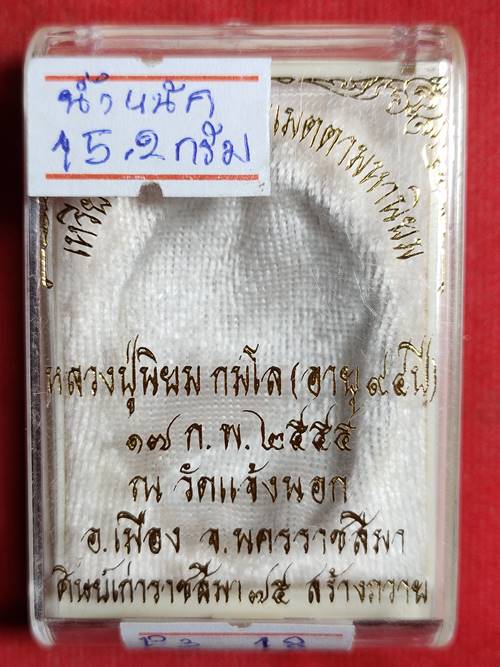 น้ำหนัก
15.2 กรัม
เหรียญ เมตตามหานิยม
หลวงปู่นิยม กมโล (อายุ ๙๕ปี)
๑๗ ก.พ. ๒๕๕๕
ณ วัดแจ้งนอก
อ.เมือง จ.นครราชสีมา
ศิษย์เก่าราชสีมา ๗๕ สร้างถวาย
18